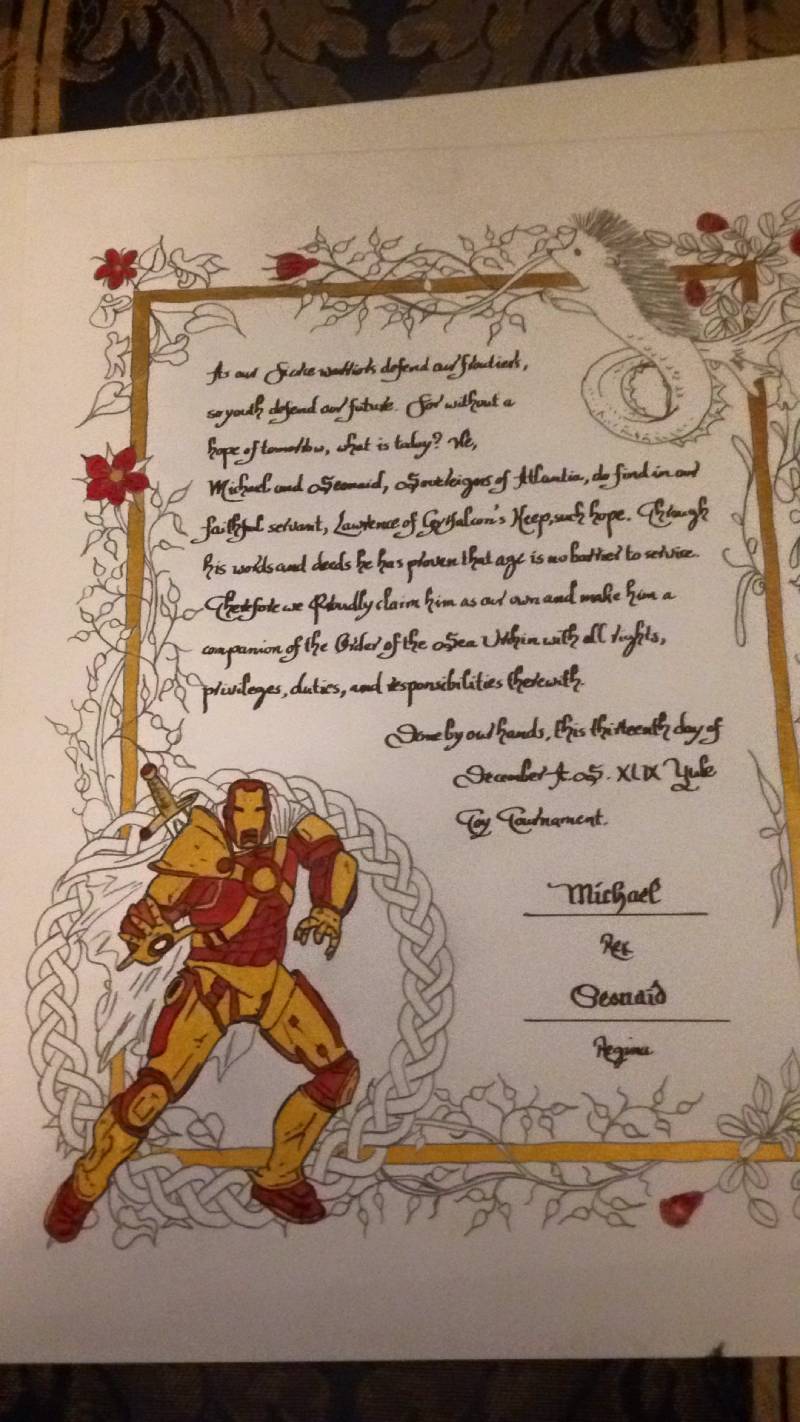 As our fierce warriors defend our frontiers,
so youth defend our future. For without a
hope of tomorrow, what is today? We,
Michael and Seonaid, Sovereigns of Atlantia, do find in our
faithful servant, Lawrence of Gyrfalcon's Keep, such hope. Through
his words and deeds he has proven that age is no barrier to service.
Therefore we Proudly claim him as our own and make him a
companion of the Order of the Sea Urchin with all rights,
privileges, duties, and responsibilities therewith.
Done by our hands, this thirteenth day of
December A.S. XLIX Yule
Toy Tournament.
Michael
Rex
Seonaid
Regina